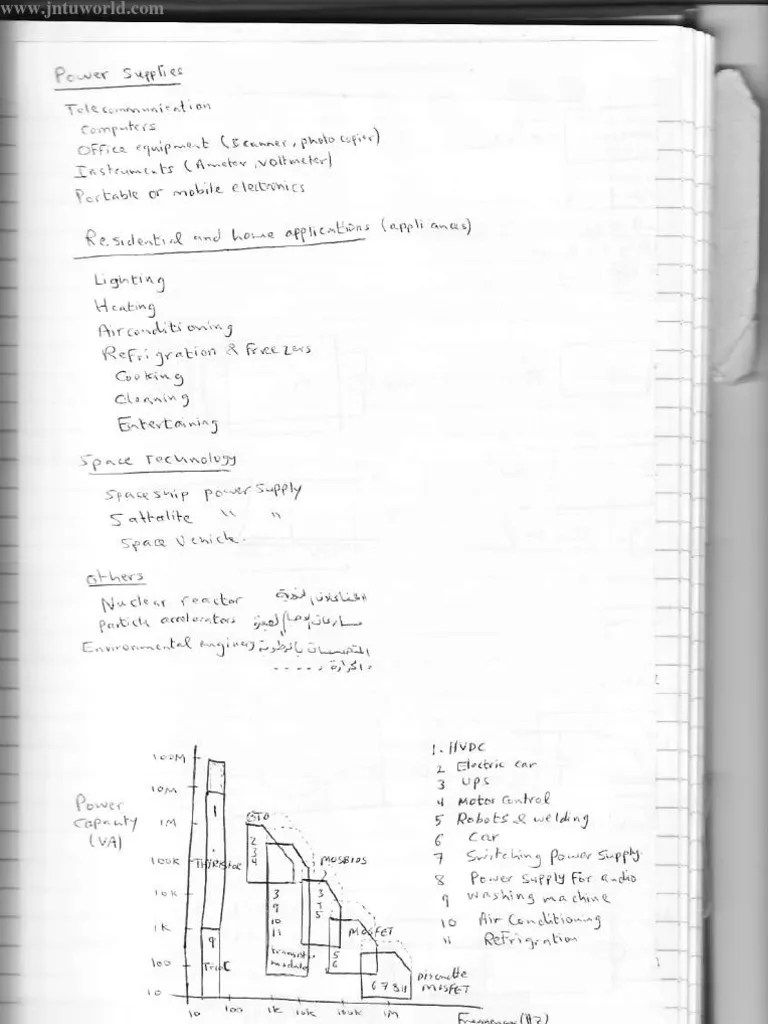 www.jntuworld.com
Power Supplies
Telecommunication
Computers
Office equipment (Scanner, photocopier)
Instruments (Ameter, voltmeter)
Portable or mobile electronics
Residential and home applications (appliances)
Lighting
Heating
Airconditioning
Refrigration & Freezers
Cooking
Cleaning
Entertaining
Space Technology
Spaceship power supply
Sattalite " "
Space Vehicle.
Others
Nuclear reactor
Particle accelerators
Environmental
1. HVDC
2 Electric car
3 UPS
4 Motor Control
5 Robots & welding
6 Car
7 Switching Power Supply
8 Power Supply For audio
9 Washing machine
10 Air Conditioning
11 Refrigration
Power
Capacity
(VA)
100M
10M
1M
100k
10k
1k
100
10
1
THYRISTOR
9
GTO
2
3
4
MOSBIOS
3
9
10
11
3
7
5
MOSFET
5
6
6 7 8 11
Discrete
MOSFET
10
100
1k
10k
100k
1M
Frequency (HZ)